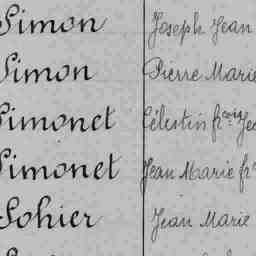 Simon Joseph Jean
Simon Pierre Marie
Simonet Célestin frçois Je
Simonet Jean Marie fr
Sohier Jean Marie